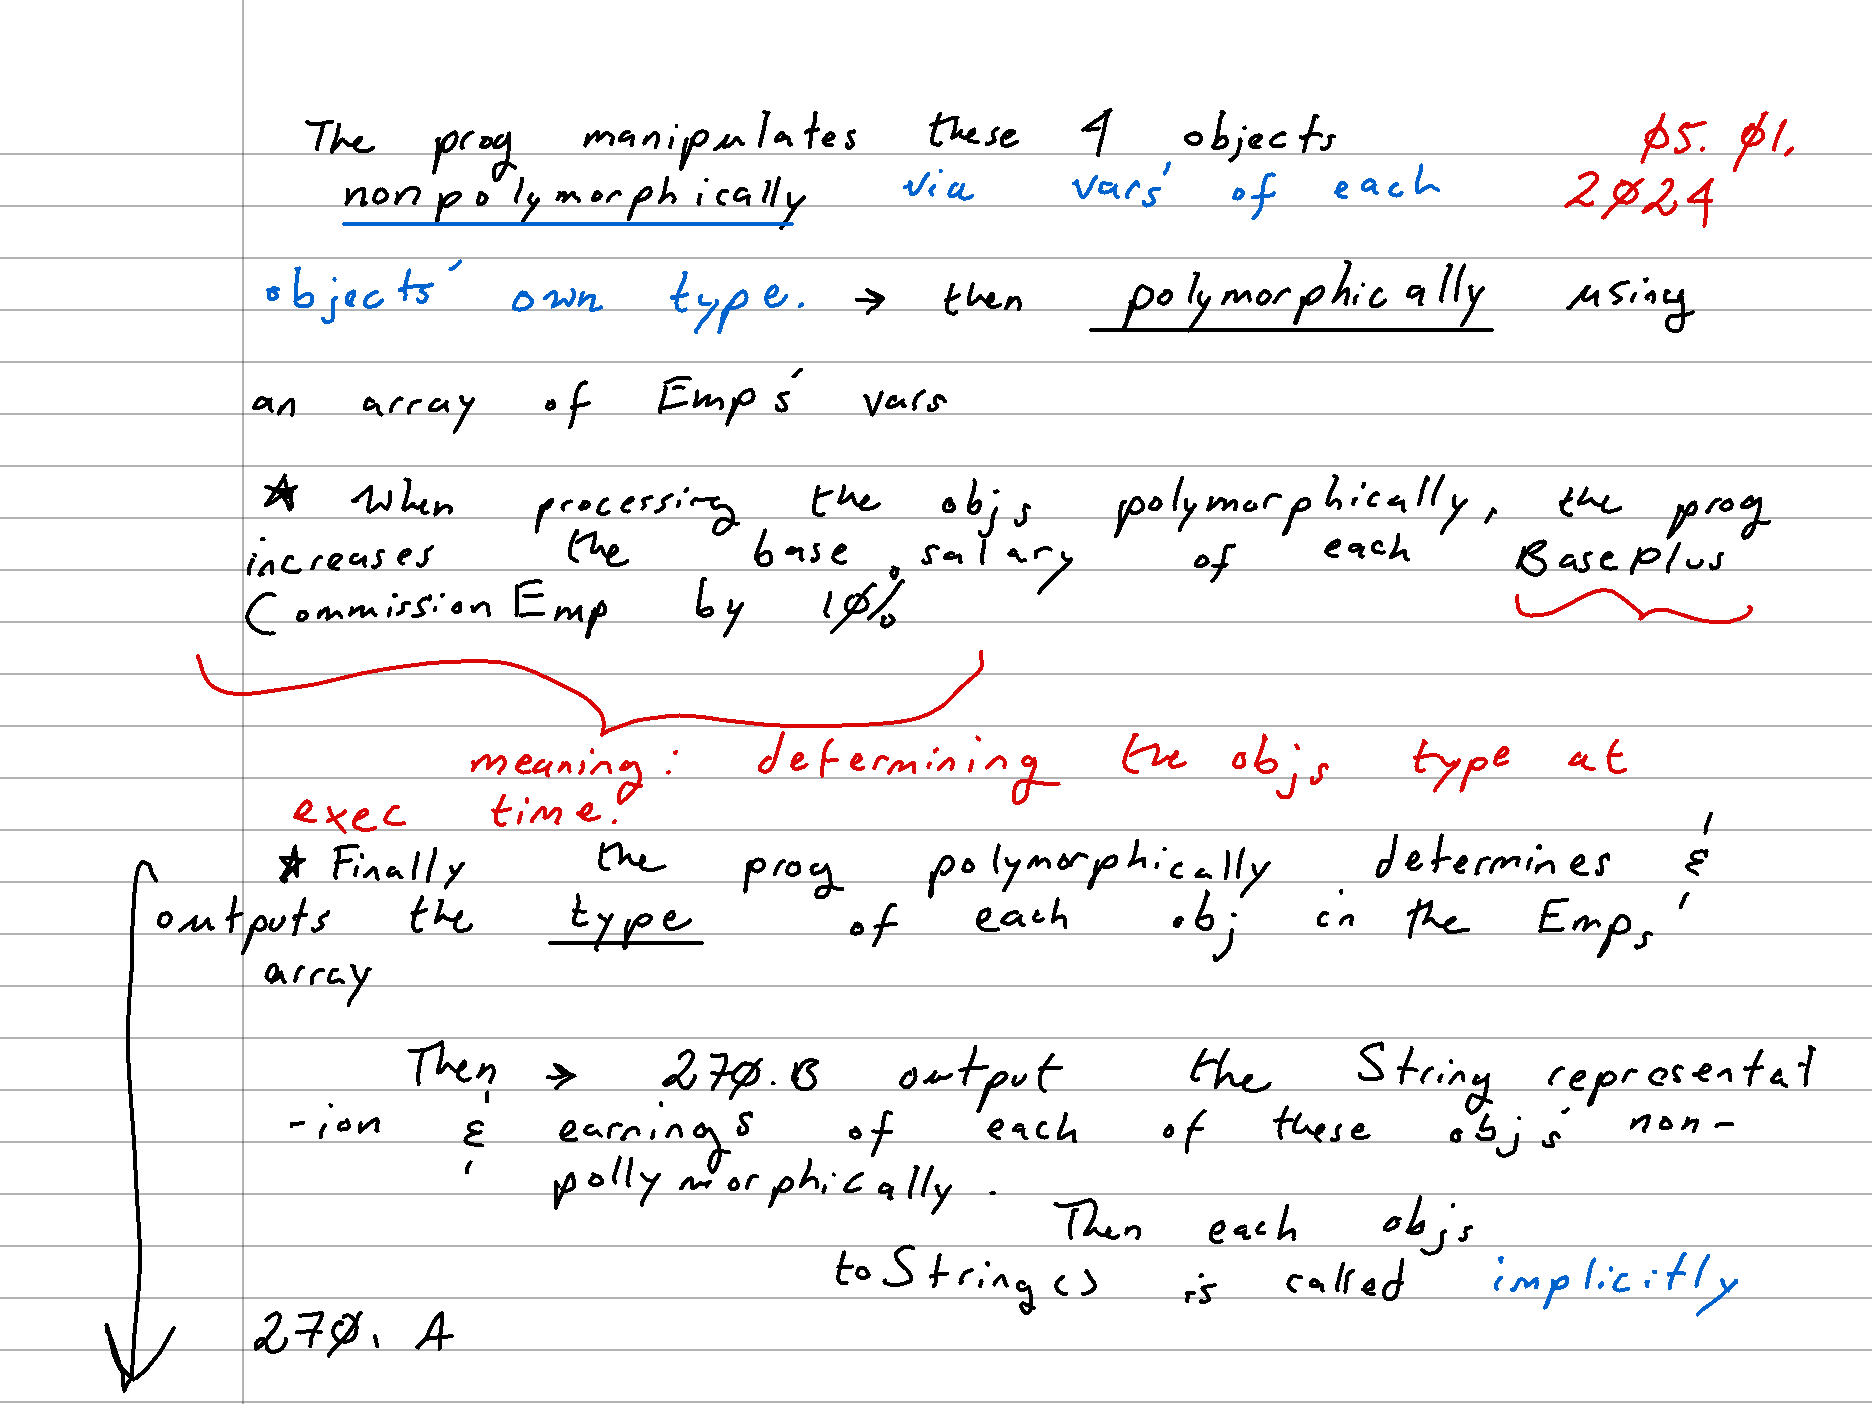 The prog manipulates these 4 objects
Ø5. Ø1.
nonpolymorphically via vars' of each
2Ø24
objects' own type. → then polymorphically using
an array of Emps' vars
★ When processing the objs polymorphically, the prog
increases the base salary of each Baseplus
CommissionEmp by 1Ø%
meaning: determining the objs type at
exec time.
★ Finally the prog polymorphically determines &
outputs the type of each obj in the Emps'
array
Then → 27Ø.B output the String representat
-ion & earnings of each of these objs' non-
pollymorphically.
Then each objs
toString() is called implicitly
27Ø. A